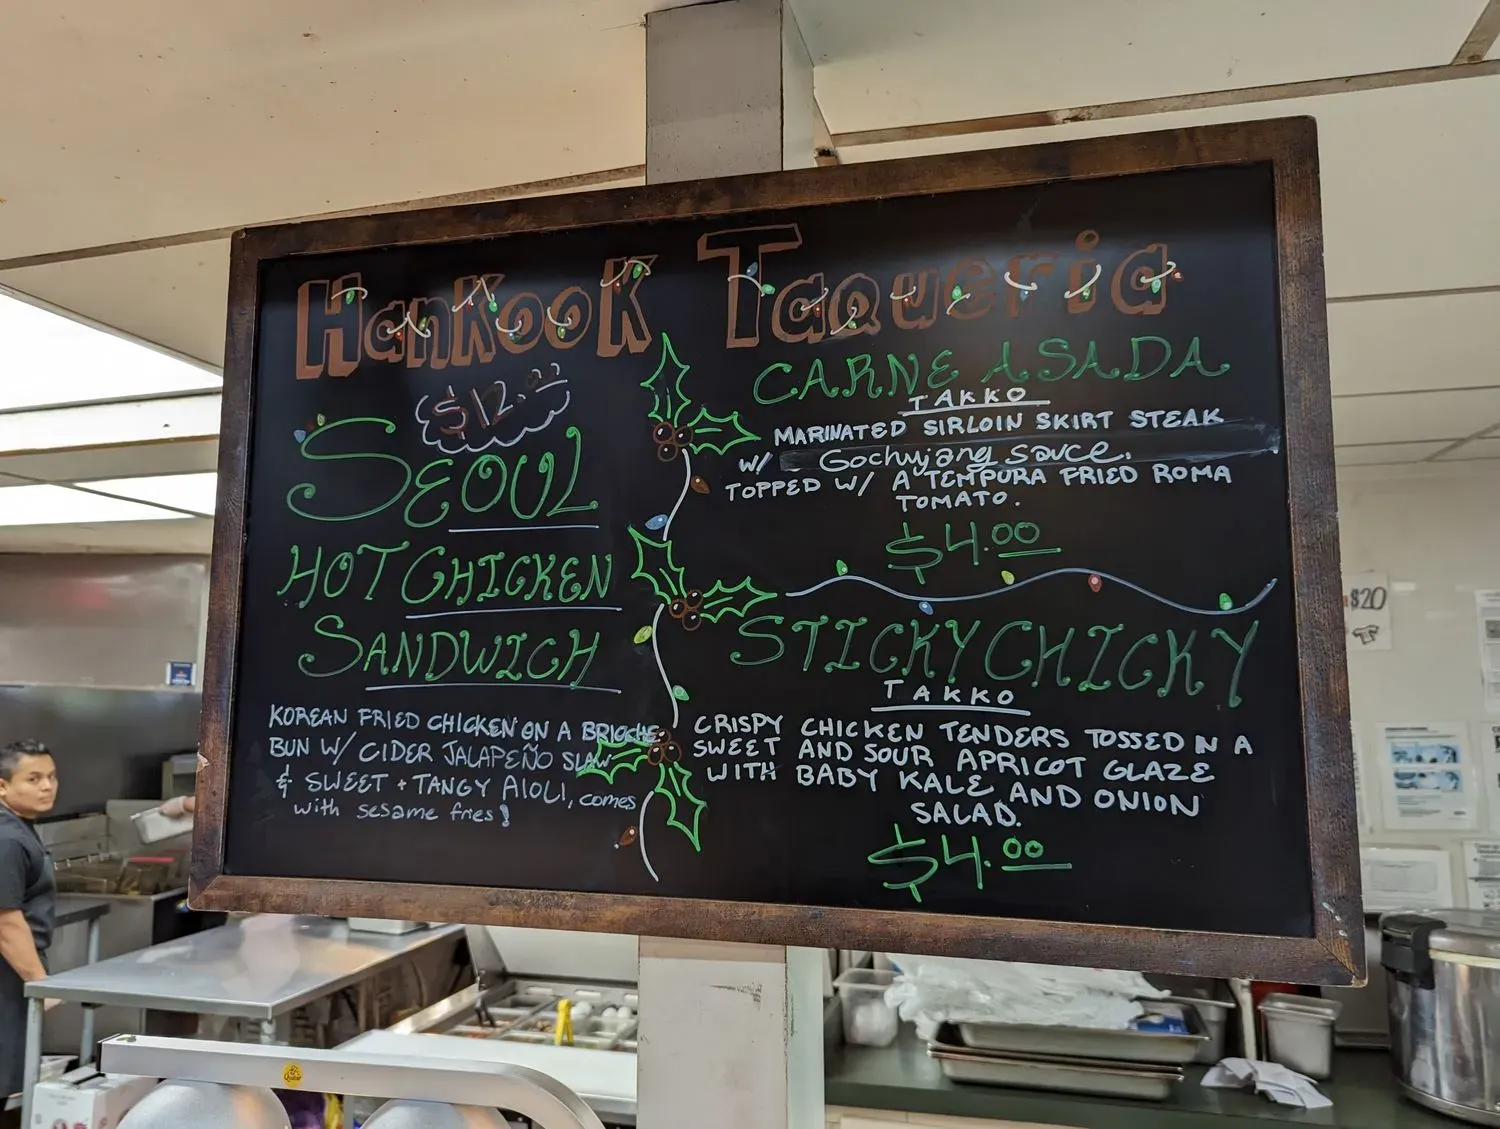 HanKooK Taqueria
$12.00
SEOUL
HOT CHICKEN
SANDWICH
KOREAN FRIED CHICKEN ON A BRIOCHE
BUN W/ CIDER JALAPEÑO SLAW
& SWEET + TANGY AIOLI, comes
with sesame fries!
CARNE ASADA
TAKKO
MARINATED SIRLOIN SKIRT STEAK
W/ Gochujang sauce.
TOPPED W/ A TEMPURA FRIED ROMA
TOMATO.
$4.00
STICKY CHICKY
TAKKO
CRISPY CHICKEN TENDERS TOSSED IN A
SWEET AND SOUR APRICOT GLAZE
WITH BABY KALE AND ONION
SALAD.
$4.00
$20